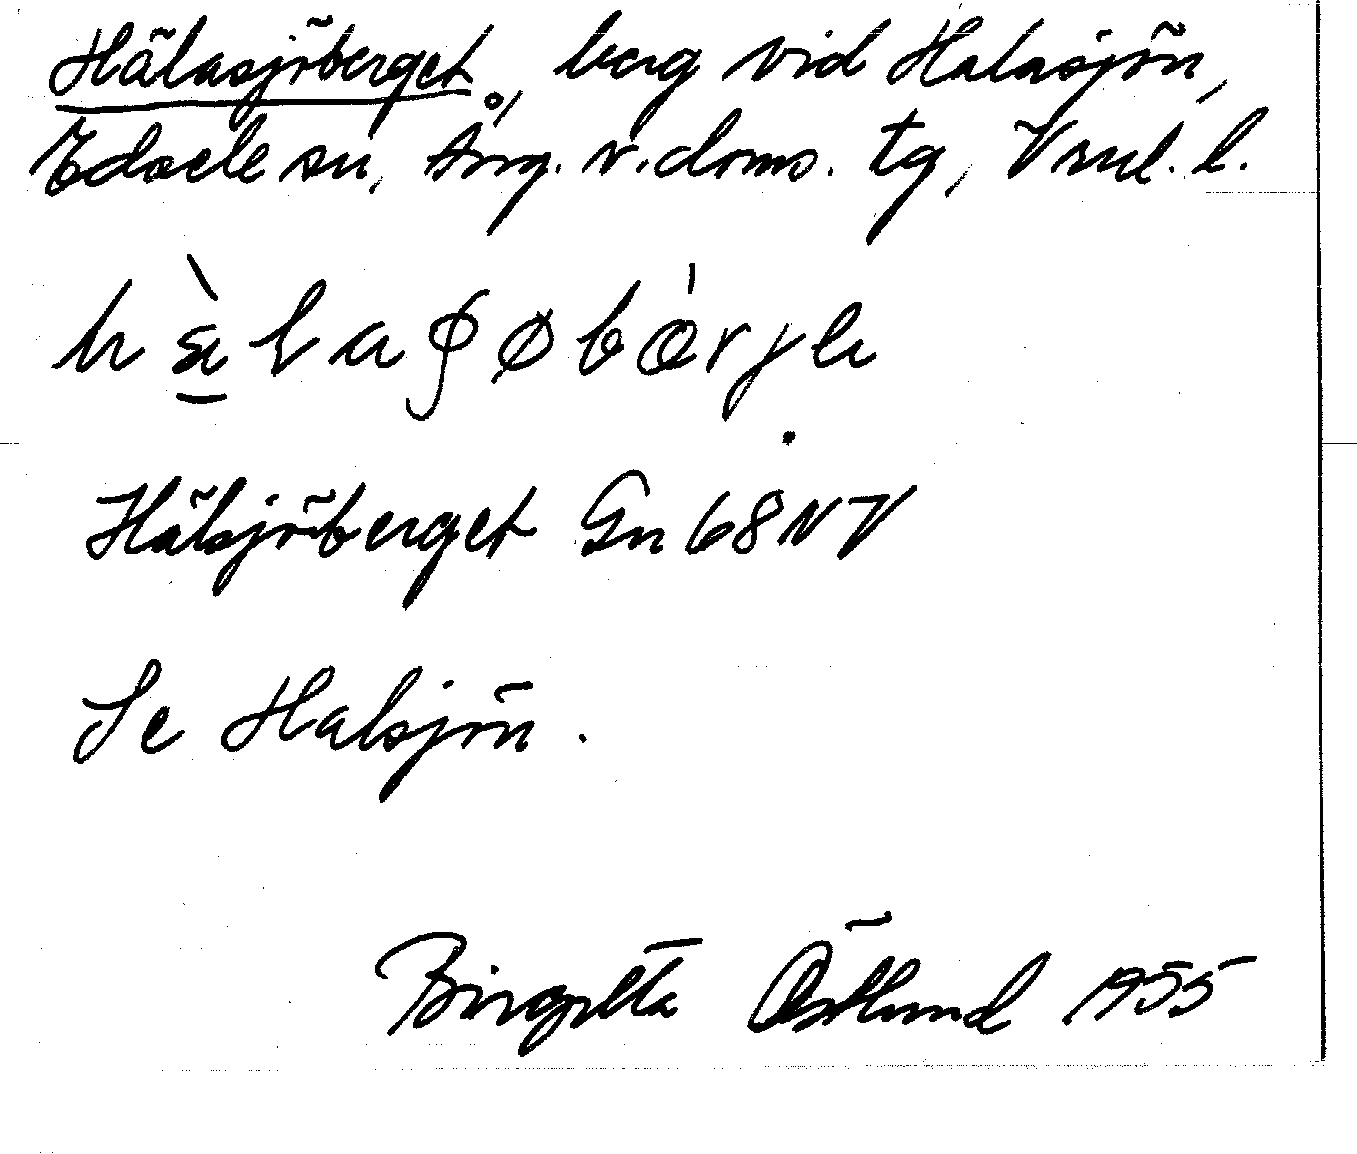 Hälasjöberget, berg vid Halasjön,
Edsele sn, Ång. v. doms. tg, Vrnl. l.
Hälsjöberget Gn 68 NV
Se Halsjön.
Birgitta Östlund 1955